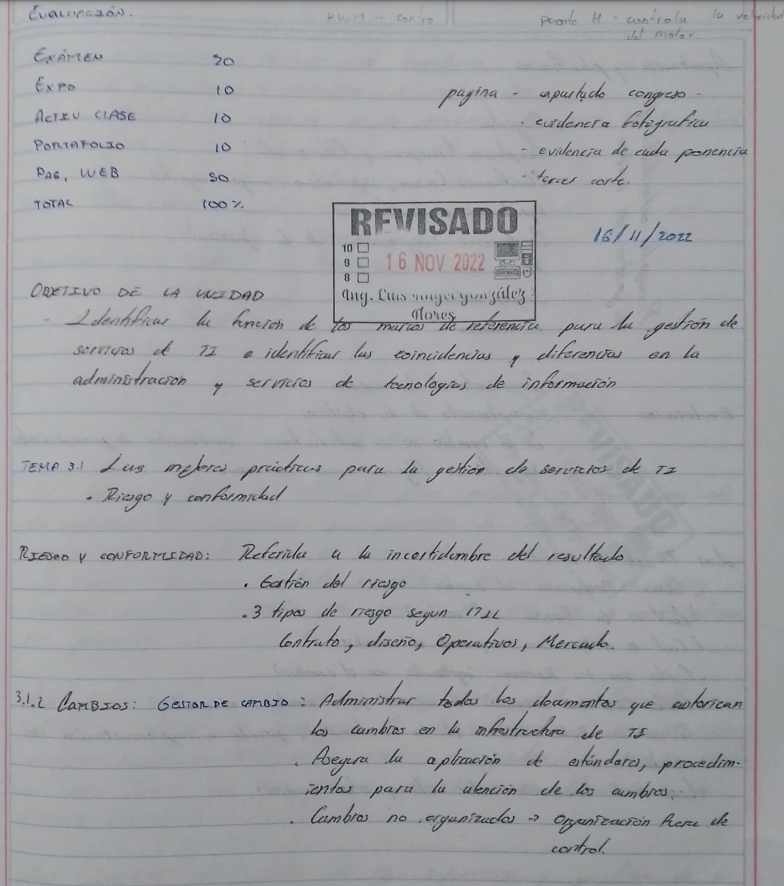 EVALUACIÓN.
PWM - contro
puente H - controla la velocidad
del motor
EXÁMEN 20
EXPO 10
ACTIV CLASE 10
PORTAFOLIO 10
PAG. WEB 50
TOTAL 100%
pagina - apartado congreso -
- evidencia fotografica
- evidencia de cada ponencia
- tercer corte.
REVISADO
10
9
8
16 NOV 2022
Ing. Luis Angel González
Flores
16/11/2022
OBJETIVO DE LA UNIDAD
- Identificar la función de los marcos de referencia para la gestión de
servicios de TI e identificar las coincidencias y diferencias en la
administración y servicios de tecnologías de información
TEMA 3.1 Las mejores prácticas para la gestión de servicios de TI
• Riesgo y conformidad
RIESGO Y CONFORMIDAD: Referida a la incertidumbre del resultado
. Gestión del riesgo
. 3 tipos de riesgo segun ITIL
Contrato, diseño, Operativos, Mercado.
3.1.2 CAMBIOS: GESTOR DE CAMBIO: Administrar todos los documentos que autorican
los cambios en la infraestructura de TI
. Asegura la aplicación de estándares, procedim-
ientos para la atención de los cambios.
. Cambios no organizados → Organización fuera de
control.